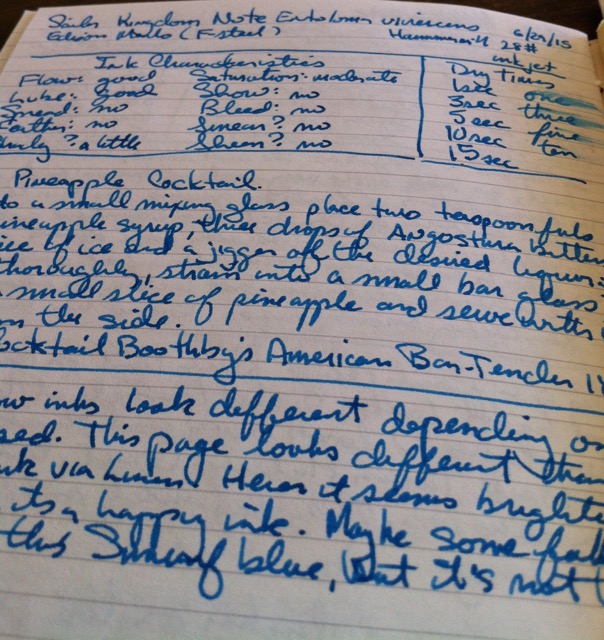 Kingdom Note Entoloma virescens 6/29/15
Edison (F-steel) Hammermill 28# inkjet
Ink Characteristics
Flow: good Saturation: moderate
Lube: good Show: no
Spread: no Bleed: no
Feather: no Smear? no
? a little Sheen? no
Dry Times
1sec one
3sec three
5sec five
10sec ten
15sec
Pineapple Cocktail.
to a small mixing glass place two teaspoonfuls
pineapple syrup, three drops of Angostura bitters
ice of ice and a jigger of the desired liquor
thoroughly, strain into a small bar glass
small slice of pineapple and serve with
on the side.
ocktail Boothby's American Bar-Tender 18
ow inks look different depending on
sed. This page looks different than
via Here it seems brighter
its a happy ink. Maybe some
this blue, but it's not